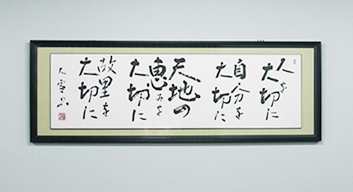 人を
大切に
自分を
大切に
天地の
恵みを
大切に
故里を
大切に